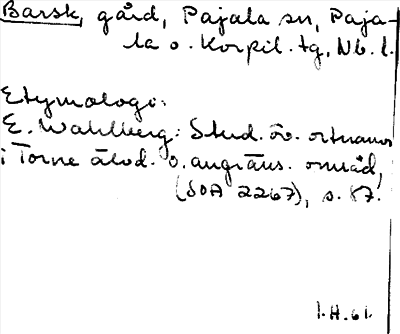 Barsk, gård, Pajala sn, Paja-
la o. Korpil. tg, Nb. l.
Etymologi:
E. Wahlberg: Stud. öv. ortnamn
i Torne älvd. o. angräns. område,
(SOA 2267), s. 87.
1.H.61.